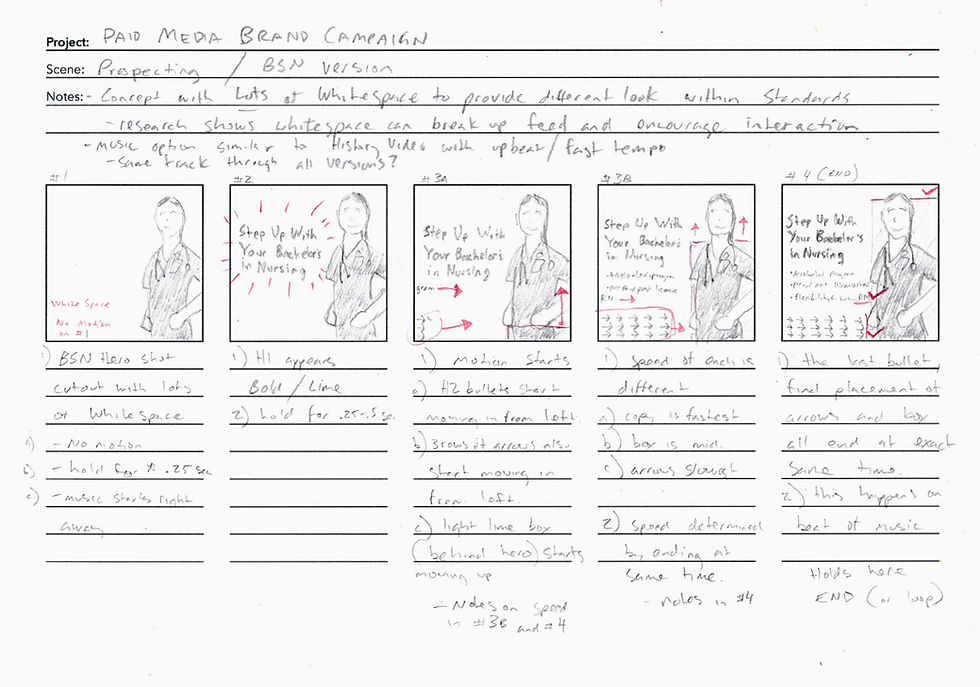 Project: PAID MEDIA BRAND CAMPAIGN
Scene: Prospecting / BSN version
Notes: - Concept with Lots of Whitespace to provide different look within Standards
- research shows whitespace can break up feed and encourage interaction
- music option similar to History Video with upbeat / fast tempo
- Same track through all versions?
#1
White Space
No Motion
on #1
1) BSN Hero shot
cutout with lots
of White space
a) - No motion
b) - hold for .25 sec
c) - music starts right
away
#2
Step Up With
Your Bachelor's
in Nursing
1) H1 appears
Bold / Lime
2) hold for .25-.5 sec.
#3A
Step Up With
Your Bachelors
in Nursing
gram
1) Motion Starts
a) H2 bullets start
moving in from left.
b) 3 rows of arrows also
start moving in
from left.
c) light lime box
(behind hero) starts
moving up.
- Notes on speed
in #3B and #4
#3B
Step Up With
Your Bachelor's
in Nursing
RN
1) Speed of each is
different
a) copy is fastest
b) box is mid.
c) arrows slowest
2) speed determined
by ending at
same time.
- notes in #4
#4 (END)
Step Up With
Your Bachelor's
in Nursing
RN
1) the last bullet,
final placement of
arrows and box
all end at exact
Same time.
2) this happens on
beat of music
Holds here
END (or loop)